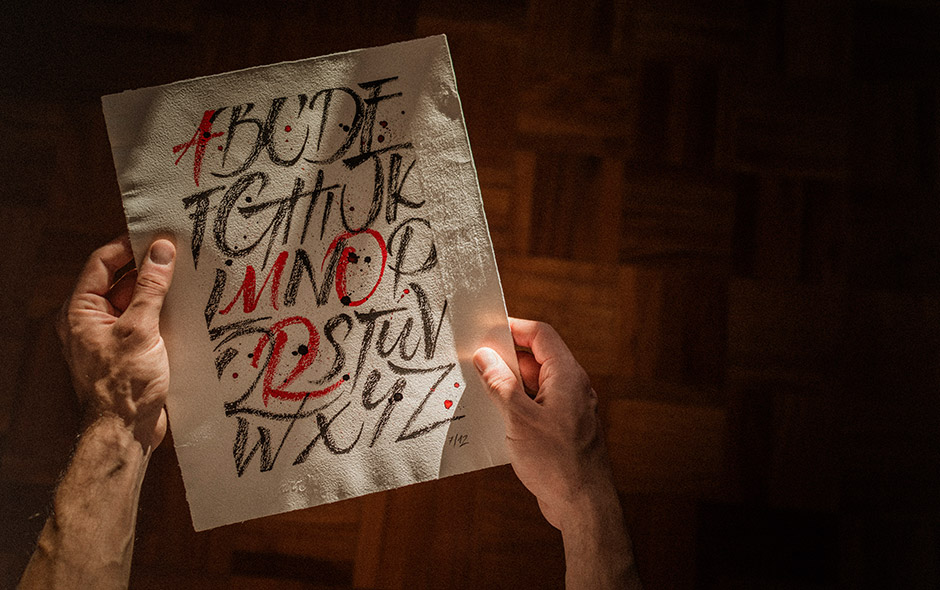 ABCDE
FGHIJK
LMNOP
QRSTUV
WXYZ
7/12